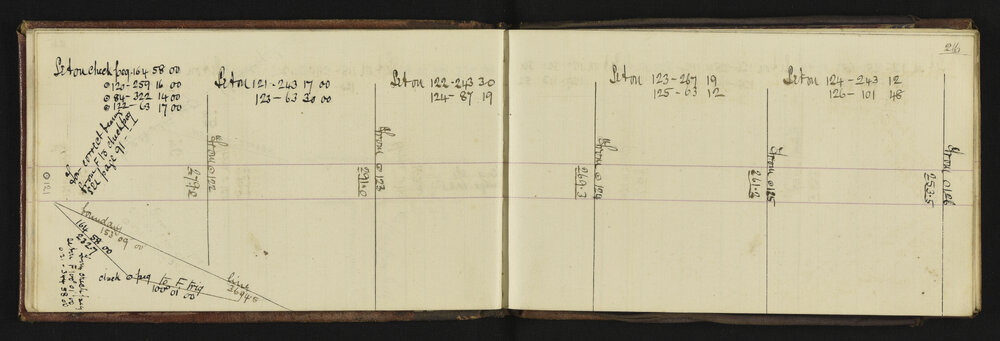 26
Set on check peg 164 58 00
⊙ 120-259 16 00
⊙ 84-322 14 00
⊙ 122-63 17 00
Set on 121-243 17 00
123-63 30 00
Set on 122-243 30
124-87 19
Set on 123-267 19
125-63 12
Set on 124-243 12
126-101 48
For correct bearing
from F to check peg
see page 91
⊙ 121
from ⊙ 122
279.2
from ⊙ 123
291.0
from ⊙ 124
269.3
from ⊙ 125
261.2
from ⊙ 126
253.5
boundary
153 09 00
164 58 00
2327
line
3694.0
check ⊙ peg
to F peg
100 01 00